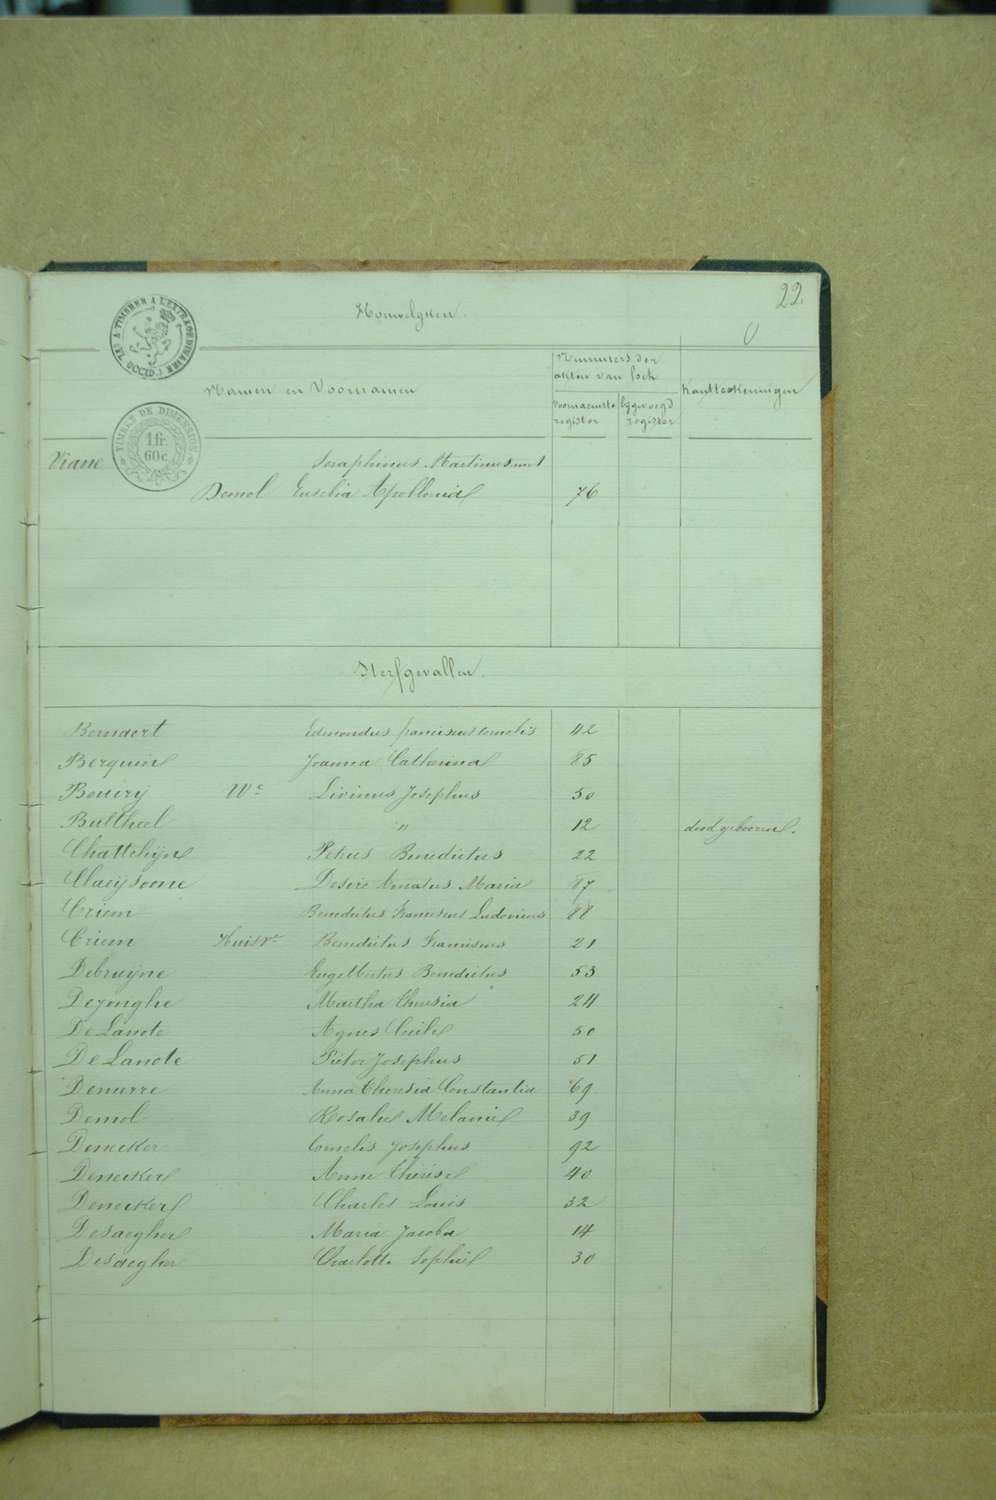 22
Houwelyken.
V
TIMBRE A L'EXTRAORDINAIRE
FL. OCCID.
Nummers der
akten van Boek
Namen en Voornamen
Kantteekeningen
voornaamste bijgevoegd
register register
TIMBRE DE DIMENSION
1 fr.
60 c.
Viane Seraphinus Martinus met
Demol Eusebia Apollonia 76
Sterfgevallen.
Bernaert Edmondus franciscus Cornelis 42
Berquin Joanna Catharina 85
Bouiry We Livinus Josephus 50
Bultheel " 12 dood geboren.
Chattelyn Petrus Benedictus 22
Claeysoone Desire Donatus Maria 87
Criem Benedictus Franciscus Ludovicus 88
Criem Huisve Benedictus Franciscus 21
Debruyne Engelbertus Benedictus 53
Dejonghe Martha Theresia 24
De Lanote Agnes Cecile 50
De Lanote Pieter Josephus 51
Demerre Anna Theresia Constantia 69
Demol Rosalie Melanie 39
Denecker Cornelis Josephus 92
Denecker Anne Thérèse 40
Denecker Charles Louis 32
Desaegher Maria Jacoba 14
Desaegher Charlotte Sophie 30